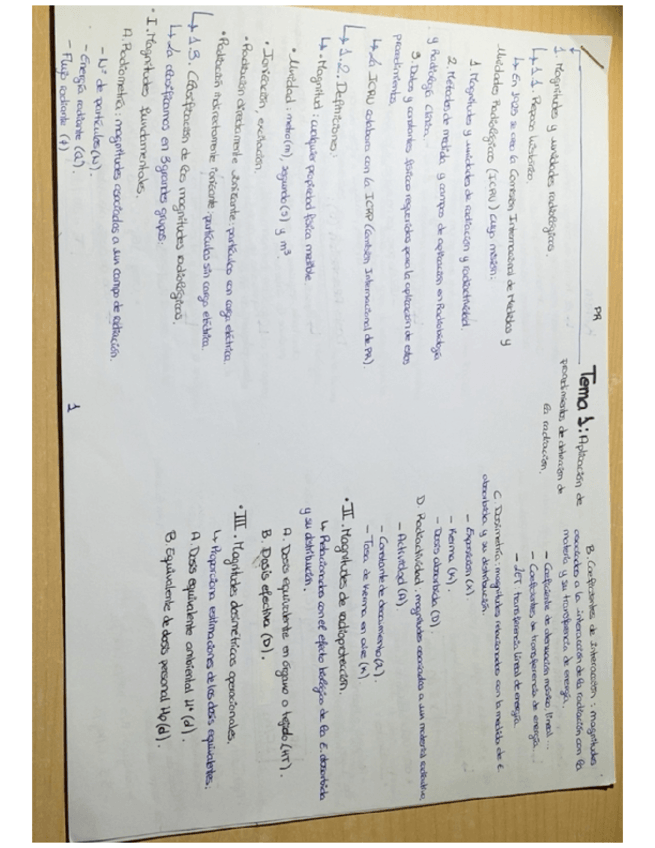 PR
Tema 1: Aplicación de
procedimientos de detección de
la radiación.
1. Magnitudes y unidades radiológicas.
↳ 1.1. Repaso histórico.
↳ En 1925 se crea la Comisión Internacional de Medidas y
Unidades Radiológicas (ICRU) cuya misión:
1. Magnitudes y unidades de radiación y radiactividad.
2. Métodos de medida y campos de aplicación en Radiobiología
y Radiología Clínica.
3. Datos y constantes físicas requeridas para la aplicación de estos
procedimientos.
↳ La ICRU colabora con la ICRP (Comisión Internacional de PR).
↳ 1.2. Definiciones:
↳ Magnitud: cualquier propiedad física medible
• Unidad: metro(m), segundo(s) y m³
• Ionización, excitación.
• Radiación directamente ionizante: partículas con carga eléctrica
• Radiación indirectamente ionizante: partículas sin carga eléctrica.
↳ 1.3. Clasificación de las magnitudes radiológicas.
↳ La clasificamos en 3 grandes grupos:
• I. Magnitudes fundamentales.
A. Radiometría: magnitudes asociadas a un campo de radiación.
- Nº de partículas (N).
- Energía radiante (Q).
- Flujo radiante
1
B. Coeficientes de Interacción: magnitudes
asociadas a la interacción de la radiación con la
materia y su transferencia de energía.
- Coeficiente de atenuación másico, lineal...
- Coeficientes, de transferencia de energía...
- LET transferencia lineal de energía.
C. Dosimetría: magnitudes relacionadas con la medida de E
absorbida y su distribución.
- Exposición (X).
- Kerma (K).
- Dosis absorbida (D).
D. Radiactividad: magnitudes asociadas a un material radiactivo
- Actividad (A)
- Constante de decaimiento (λ).
- Tasa de kerma en aire (K)
• II. Magnitudes de radioprotección.
↳ Relacionadas con el efecto biológico de la E. absorbida
y su distribución.
A. Dosis equivalente en órgano o tejido (HT).
B. Dosis efectiva (D).
• III. Magnitudes dosimétricas operacionales.
↳ Proporciona estimaciones de las dosis equivalentes.
A. Dosis equivalente ambiental H* (d).
B. Equivalente de dosis personal Hp (d).